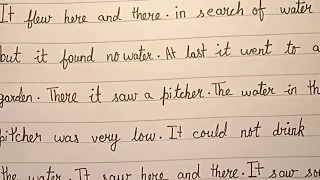 It flew here and there. in search of water
but it found no water. At last it went to a
garden. There it saw a pitcher. The water in th
pitcher was very low. It could not drink
the water. It saw here and there. It saw so